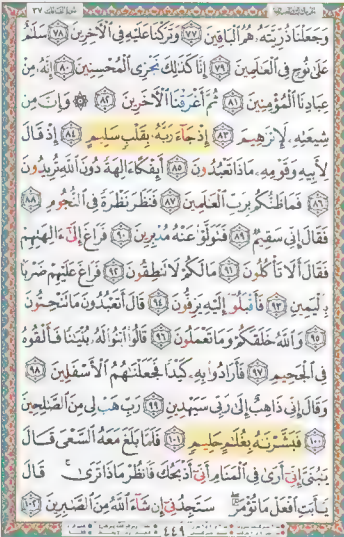 وَجَعَلْنَا ذُرِّيَّتَهُۥ هُمُ ٱلْبَاقِينَ ٧٧ وَتَرَكْنَا عَلَيْهِ فِى ٱلْءَاخِرِينَ ٧٨ سَلَٰمٌ
عَلَىٰ نُوحٍ فِى ٱلْعَٰلَمِينَ ٧٩ إِنَّا كَذَٰلِكَ نَجْزِى ٱلْمُحْسِنِينَ ٨٠ إِنَّهُۥ مِنْ
عِبَادِنَا ٱلْمُؤْمِنِينَ ٨١ ثُمَّ أَغْرَقْنَا ٱلْءَاخَرِينَ ٨٢ ۞ وَإِنَّ مِن
شِيعَتِهِۦ لَإِبْرَٰهِيمَ ٨٣ إِذْ جَآءَ رَبَّهُۥ بِقَلْبٍ سَلِيمٍ ٨٤ إِذْ قَالَ
لِأَبِيهِ وَقَوْمِهِۦ مَاذَا تَعْبُدُونَ ٨٥ أَئِفْكًا ءَالِهَةً دُونَ ٱللَّهِ تُرِيدُونَ
٨٦ فَمَا ظَنُّكُم بِرَبِّ ٱلْعَٰلَمِينَ ٨٧ فَنَظَرَ نَظْرَةً فِى ٱلنُّجُومِ ٨٨
فَقَالَ إِنِّى سَقِيمٌ ٨٩ فَتَوَلَّوْا۟ عَنْهُ مُدْبِرِينَ ٩٠ فَرَاغَ إِلَىٰٓ ءَالِهَتِهِمْ
فَقَالَ أَلَا تَأْكُلُونَ ٩١ مَا لَكُمْ لَا تَنطِقُونَ ٩٢ فَرَاغَ عَلَيْهِمْ ضَرْبًۢا
بِٱلْيَمِينِ ٩٣ فَأَقْبَلُوٓا۟ إِلَيْهِ يَزِفُّونَ ٩٤ قَالَ أَتَعْبُدُونَ مَا تَنْحِتُونَ
٩٥ وَٱللَّهُ خَلَقَكُمْ وَمَا تَعْمَلُونَ ٩٦ قَالُوا۟ ٱبْنُوا۟ لَهُۥ بُنْيَٰنًا فَأَلْقُوهُ
فِى ٱلْجَحِيمِ ٩٧ فَأَرَادُوا۟ بِهِۦ كَيْدًا فَجَعَلْنَٰهُمُ ٱلْأَسْفَلِينَ ٩٨
وَقَالَ إِنِّى ذَاهِبٌ إِلَىٰ رَبِّى سَيَهْدِينِ ٩٩ رَبِّ هَبْ لِى مِنَ ٱلصَّٰلِحِينَ
١٠٠ فَبَشَّرْنَٰهُ بِغُلَٰمٍ حَلِيمٍ ١٠١ فَلَمَّا بَلَغَ مَعَهُ ٱلسَّعْىَ قَالَ
يَٰبُنَىَّ إِنِّىٓ أَرَىٰ فِى ٱلْمَنَامِ أَنِّىٓ أَذْبَحُكَ فَٱنظُرْ مَاذَا تَرَىٰ ۚ قَالَ
يَٰٓأَبَتِ ٱفْعَلْ مَا تُؤْمَرُ ۖ سَتَجِدُنِىٓ إِن شَآءَ ٱللَّهُ مِنَ ٱلصَّٰبِرِينَ ١٠٢
٤٤٩